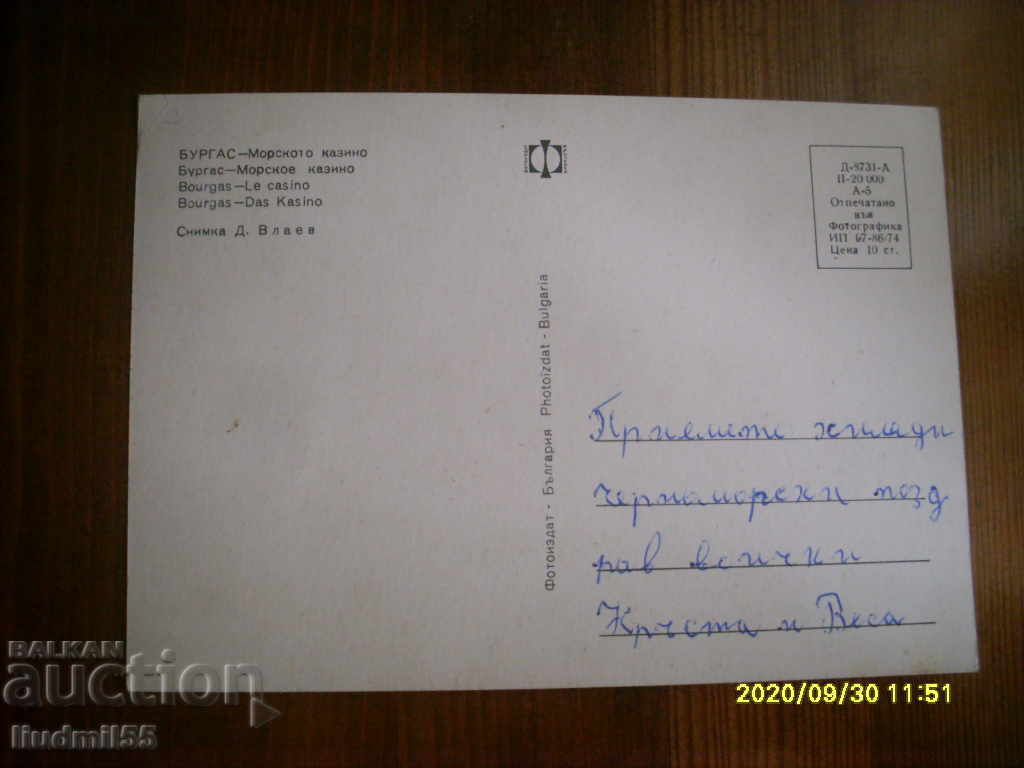 БУРГАС—Морското казино
Бургас—Морское казино
Bourgas—Le casino
Bourgas—Das Kasino
Снимка Д. Влаев
Д-8731-А
П-20 000
А-5
Отпечатано
във
Фотографика
ИП 67-86/74
Цена 10 ст.
Фотоиздат - България Photoizdat - Bulgaria
Приемете хиляди
черноморски позд
рав всички
Кръста и Веса
BALKAN
auction
liudmil55
2020/09/30 11:51